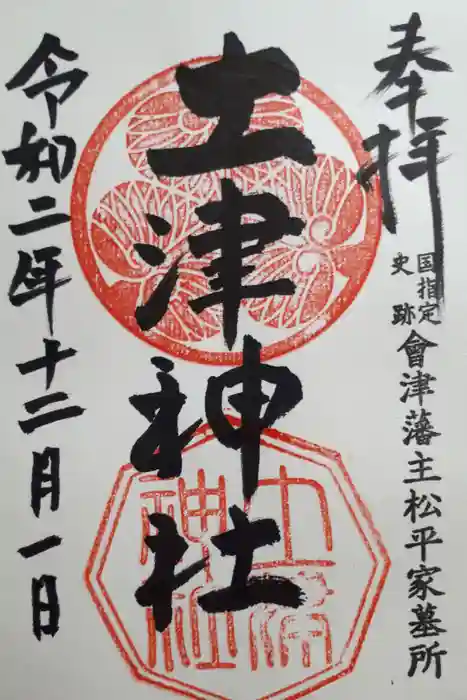 奉拝
国指定
史跡
會津藩主松平家墓所
土津神社
令和二年十二月一日
土津
神社